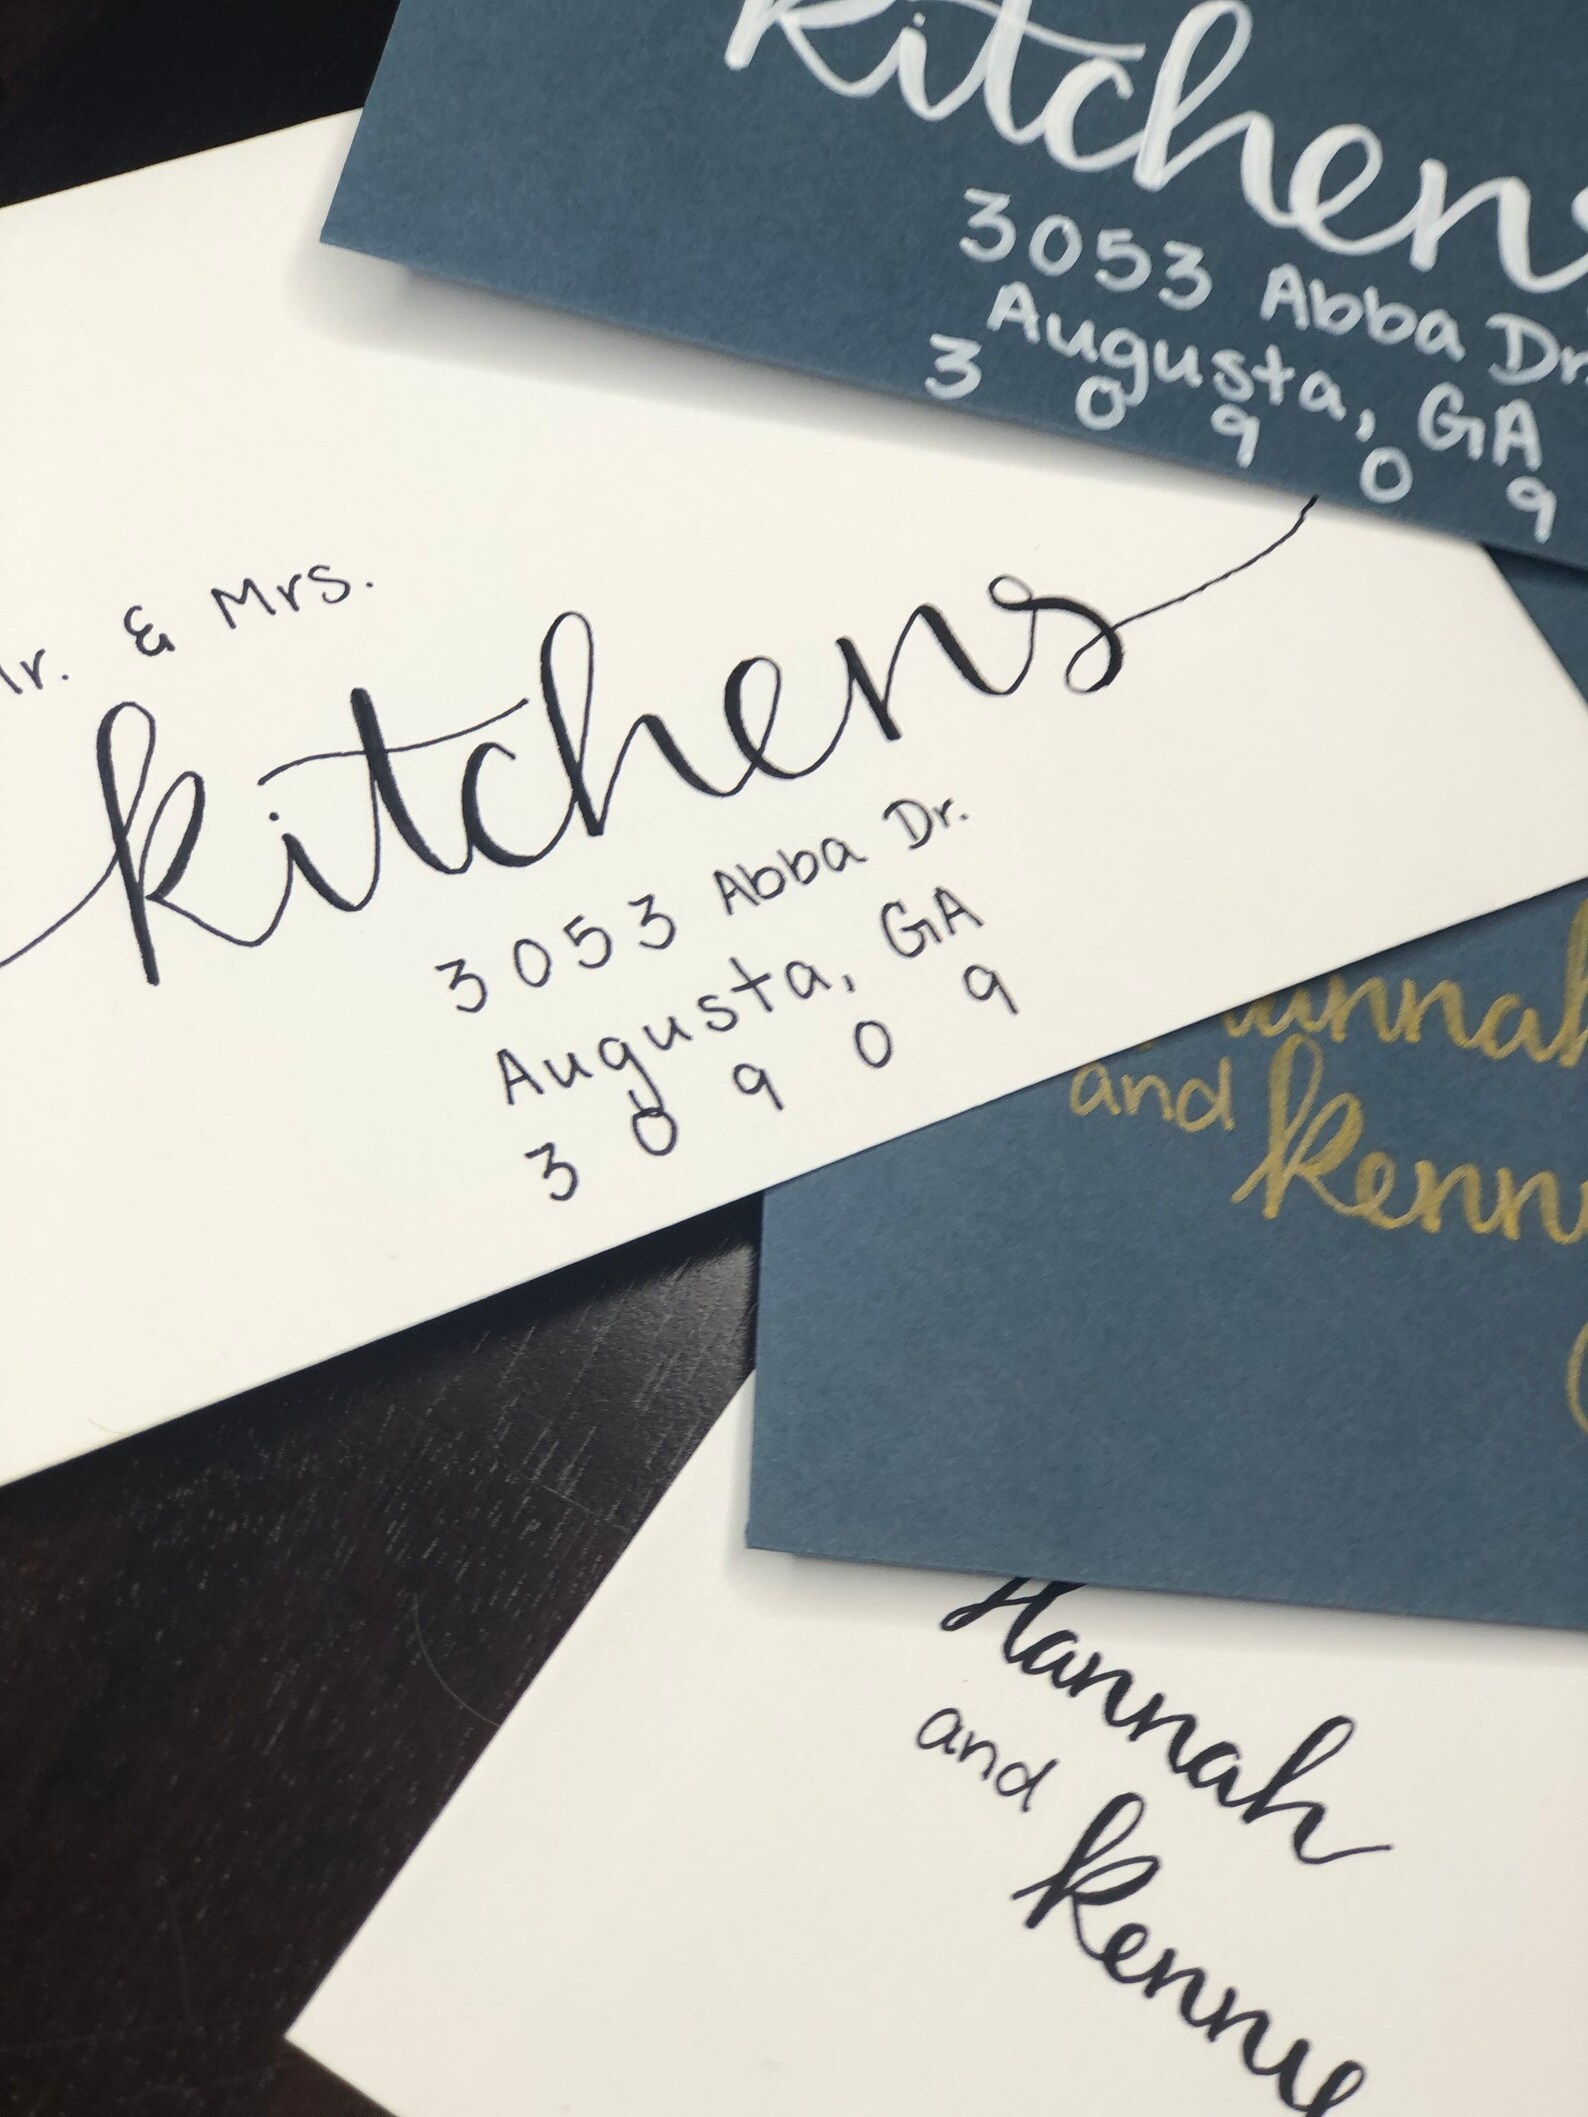 kitchens
3053 Abba Dr.
Augusta, GA
3 0 9 0 9
& Mrs.
kitchens
3053 Abba Dr.
Augusta, GA
3 0 9 0 9
Hannah
and Kenny
Hannah
and
Kenny